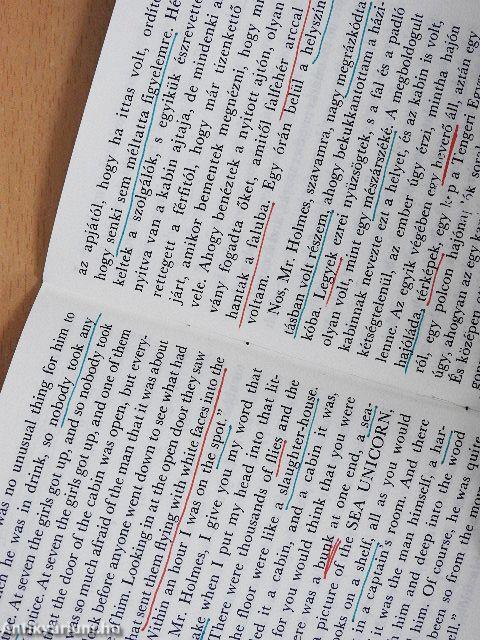 az apjától, hogy ha ittas volt, ordíto
hogy senki sem méltatta figyelemre. Hé
keltek a szolgálók, s egyikük észrevette
nyitva van a kabin ajtaja, de mindenki a
rettegett a férfitól, hogy már tizenkettő
járt, amikor bementek megnézni, hogy mi
vele. Ahogy benéztek a nyitott ajtón, olyan
vány fogadta őket, amitől falfehér arccal
hantak a faluba. Egy órán belül a helyszín
voltam.
Nos, Mr. Holmes, szavamra, nagy megrázkódta
tásban volt részem, ahogy bekukkantottam a házi-
kóba. Legyek ezrei nyüzsögtek, s a fal és a padló
olyan volt, mint egy mészárszéké. A megboldogult
kabinnak nevezte ezt a helyet, és az kabin is volt,
kétségtelenül, az ember úgy érzi, mintha hajón
lenne. Az egyik végében egy heverő áll, aztán egy
hajóláda, térképek, egy kép a Tengeri Egy
ról, egy polcon hajón
úgy, ahogyan az egy ka
És középen
was no unusual thing for him to
en he was in drink, so nobody took any
tice. At seven the girls got up, and one of them
the door of the cabin was open, but every-
so much afraid of the man that it was about
before anyone went down to see what had
him. Looking in at the open door they saw
hat sent them flying with white faces into the
Within an hour I was on the spot."
Mr. Holmes, I give you my word that
ke when I put my head into that lit-
There were thousands of flies and the
floor were like a slaughter-house.
led it a cabin, and a cabin it was,
for you would think that you were
re was a bunk at one end, a sea-
picture of the SEA UNICORN,
ks on a shelf, all as you would
a captain's room. And there
it was the man himself, a har-
him and deep into the wood
him. Of course, he was quite
een so from the mom